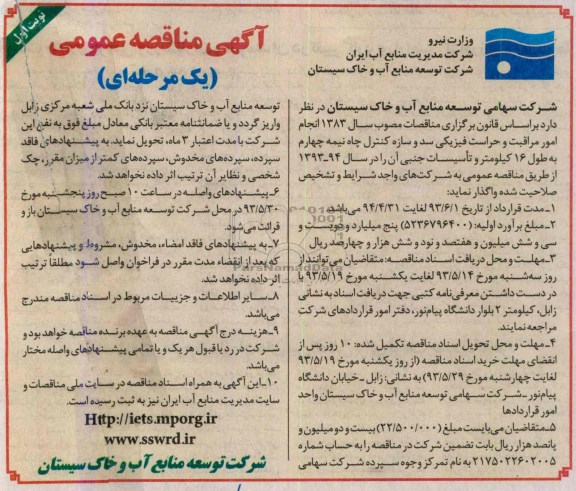 نوبت اول
آگهی مناقصه عمومی
(یک مرحله‌ای)
وزارت نیرو
شرکت مدیریت منابع آب ایران
شرکت توسعه منابع آب و خاک سیستان
شرکت سهامی توسعه منابع آب و خاک سیستان در نظر
دارد براساس قانون برگزاری مناقصات مصوب سال ۱۳۸۳ انجام
امور مراقبت و حراست فیزیکی سد و سازه کنترل چاه نیمه چهارم
به طول ۱۶ کیلومتر و تأسیسات جنبی آن را در سال ۹۴-۱۳۹۳
از طریق مناقصه عمومی به شرکت‌های واجد شرایط و تشخیص
صلاحیت شده واگذار نماید:
۱ـ مدت قرارداد از تاریخ ۹۳/۶/۱ لغایت ۹۴/۴/۳۱ می‌باشد.
۲ـ مبلغ برآورد اولیه: (۵۲۳۶۷۹۶۴۰۰) پنج میلیارد و دویست و
سی و شش میلیون و هفتصد و نود و شش هزار و چهارصد ریال
۳ـ مهلت و محل دریافت اسناد مناقصه: متقاضیان می‌توانند از
روز سه‌شنبه مورخ ۹۳/۵/۱۴ لغایت یکشنبه مورخ ۹۳/۵/۱۹ با
در دست داشتن معرفی‌نامه کتبی جهت دریافت اسناد به نشانی
زابل، کیلومتر ۲ بلوار دانشگاه پیام‌نور، دفتر امور قراردادهای شرکت
مراجعه نمایند.
۴ـ مهلت و محل تحویل اسناد مناقصه تکمیل شده: ۱۰ روز پس از
انقضای مهلت خرید اسناد مناقصه (از روز یکشنبه مورخ ۹۳/۵/۱۹
لغایت چهارشنبه مورخ ۹۳/۵/۲۹) به نشانی: زابل ـ خیابان دانشگاه
پیام‌نور ـ شرکت سهامی توسعه منابع آب و خاک سیستان واحد
امور قراردادها
۵ـ متقاضیان می‌بایست مبلغ (۲۲/۵۰۰/۰۰۰) بیست و دو میلیون و
پانصد هزار ریال بابت تضمین شرکت در مناقصه را به حساب شماره
۲۱۷۵۰۲۲۶۰۲۰۰۵ به نام تمرکز وجوه سپرده شرکت سهامی
توسعه منابع آب و خاک سیستان نزد بانک ملی شعبه مرکزی زابل
واریز گردد و یا ضمانتنامه معتبر بانکی معادل مبلغ فوق به نفع این
شرکت با مدت اعتبار ۳ ماه، تحویل نماید. به پیشنهادهای فاقد
سپرده، سپرده‌های مخدوش، سپرده‌های کمتر از میزان مقرر، چک
شخصی و نظایر آن ترتیب اثر داده نخواهد شد.
۶ـ پیشنهادهای واصله در ساعت ۱۰ صبح روز پنجشنبه مورخ
۹۳/۵/۳۰ در محل شرکت توسعه منابع آب و خاک سیستان باز و
قرائت می‌شود.
۷ـ به پیشنهادهای فاقد امضاء، مخدوش، مشروط و پیشنهادهایی
که بعد از انقضاء مدت مقرر در فراخوان واصل شود مطلقا ترتیب
اثر داده نخواهد شد.
۸ـ سایر اطلاعات و جزییات مربوط در اسناد مناقصه مندرج
می‌باشد.
۹ـ هزینه درج آگهی مناقصه به عهده برنده مناقصه خواهد بود و
شرکت در رد یا قبول هر یک و یا تمامی پیشنهادهای واصله مختار
می‌باشد.
۱۰ـ این آگهی به همراه اسناد مناقصه در سایت ملی مناقصات و
سایت مدیریت منابع آب ایران نیز به ثبت رسیده است.
Http://iets.mporg.ir
www.sswrd.ir
شرکت توسعه منابع آب و خاک سیستان
ParsNamadData